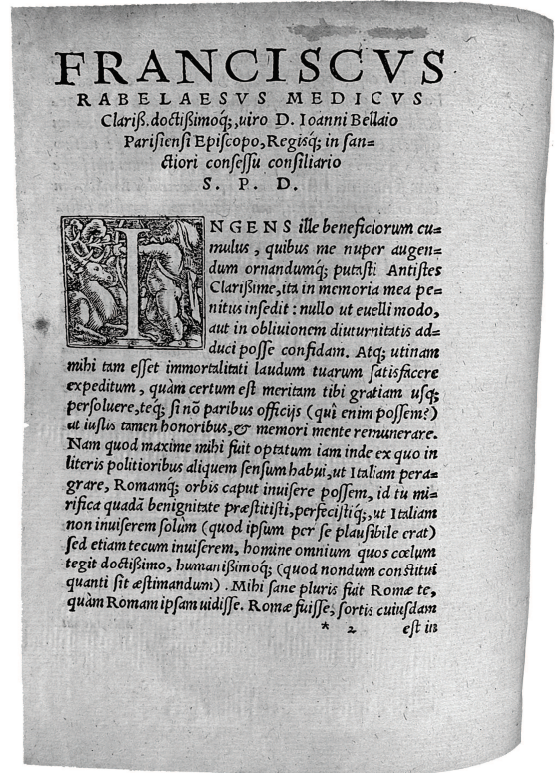 FRANCISCVS
RABELAESVS MEDICVS
Clariß. doctißimoq;, uiro D. Ioanni Bellaio
Parisiensi Episcopo, Regisq́; in san=
ctiori consessu consiliario
S. P. D.
INGENS ille beneficiorum cu=
mulus, quibus me nuper augen=
dum ornandumq́; putasti Antistes
Clarißime, ita in memoria mea pe=
nitus insedit : nullo ut euelli modo,
aut in obliuionem diuturnitatis ad=
duci posse confidam. Atq; utinam
mihi tam esset immortalitati laudum tuarum satisfacere
expeditum, quàm certum est meritam tibi gratiam usq;
persoluere, teq́; si nõ paribus officijs (quî enim possem?)
at iustis tamen honoribus, & memori mente remunerare.
Nam quod maxime mihi fuit optatum iam inde ex quo in
literis politioribus aliquem sensum habui, ut Italiam pera=
grare, Romamq́; orbis caput inuisere possem, id tu mi=
rifica quadã benignitate præstitisti, perfecistiq́;, ut Italiam
non inuiserem solum (quod ipsum per se plausibile erat)
sed etiam tecum inuiserem, homine omnium quos cœlum
tegit doctißimo, humanißimoq́; (quod nondum constitui
quanti sit æstimandum). Mihi sane pluris fuit Romæ te,
quàm Romam ipsam uidisse. Romæ fuisse, sortis cuiusdam
* 2 est in